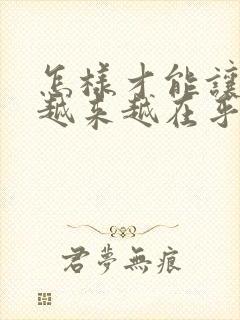 怎樣才能讓
越來越在乎
君夢無痕